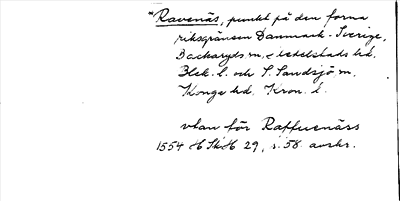 *Ravenäs, punkt på den forna
riksgränsen Danmark-Sverige,
Backaryds sn, Medelstads hd,
Blek. l. och S. Sandsjö sn,
Konga hd, Kron. l.
utan för Raffuenäss
1554 HSkH 29, s. 58 avskr.